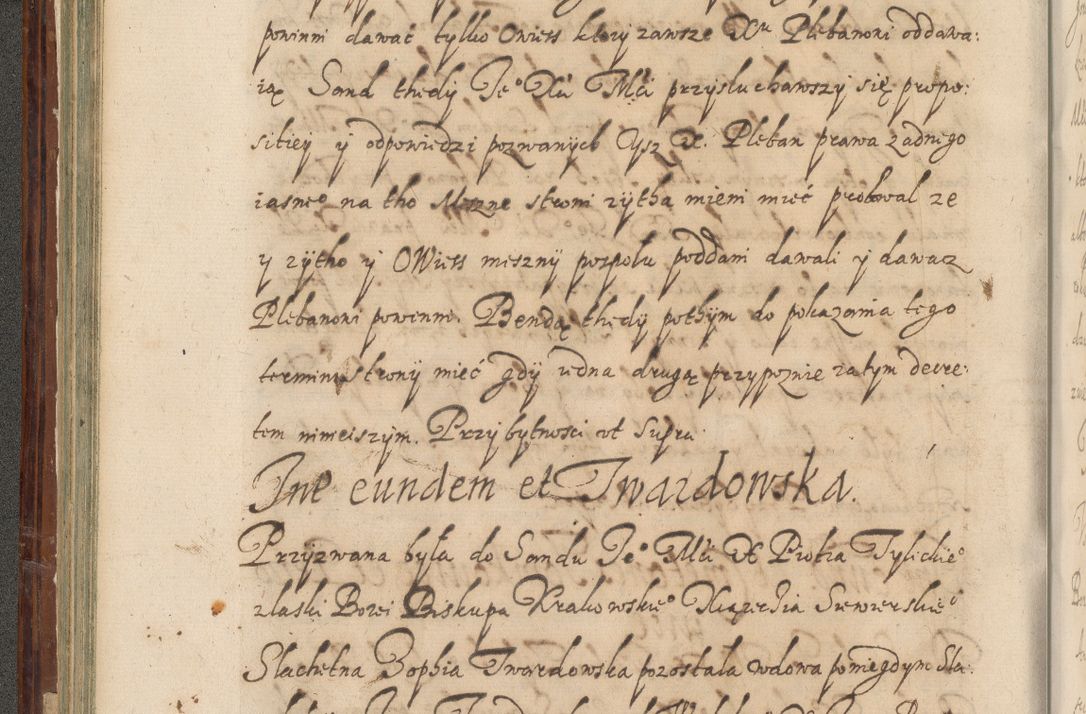 powinni dawać tylko Owiess ktory zawsze Xu Plebanoni oddawa:
iąx Sand thedy Ie° Xu Mći przysluchawszy się propo:
sitiey y odpowiedzi pozwanych Ysz X. Pleban prawa zadnego
iasne° na tho Meszne stroni zytha mieni mieć probowal ze
y zytho y OWiess meszny pospolu poddani dawali y dawacz
Plebanoni powinni. Bendą thedy pothym do pokazania tego
termin strony mieć gdy iedna drugą przypoznie za tym decre:
tem ninieiszym. Przy bytnosci ut Supra
Int eundem et Twardowska.
Przyzwana była do Sandu Ie° Mći X Piotra Tylickie°
z laski Bozei Biskupa Krakowskie° Xiązęchia Siewierskie°
Slachetna Zophia Twardowska pozostała wdowa po niegdym Sla: